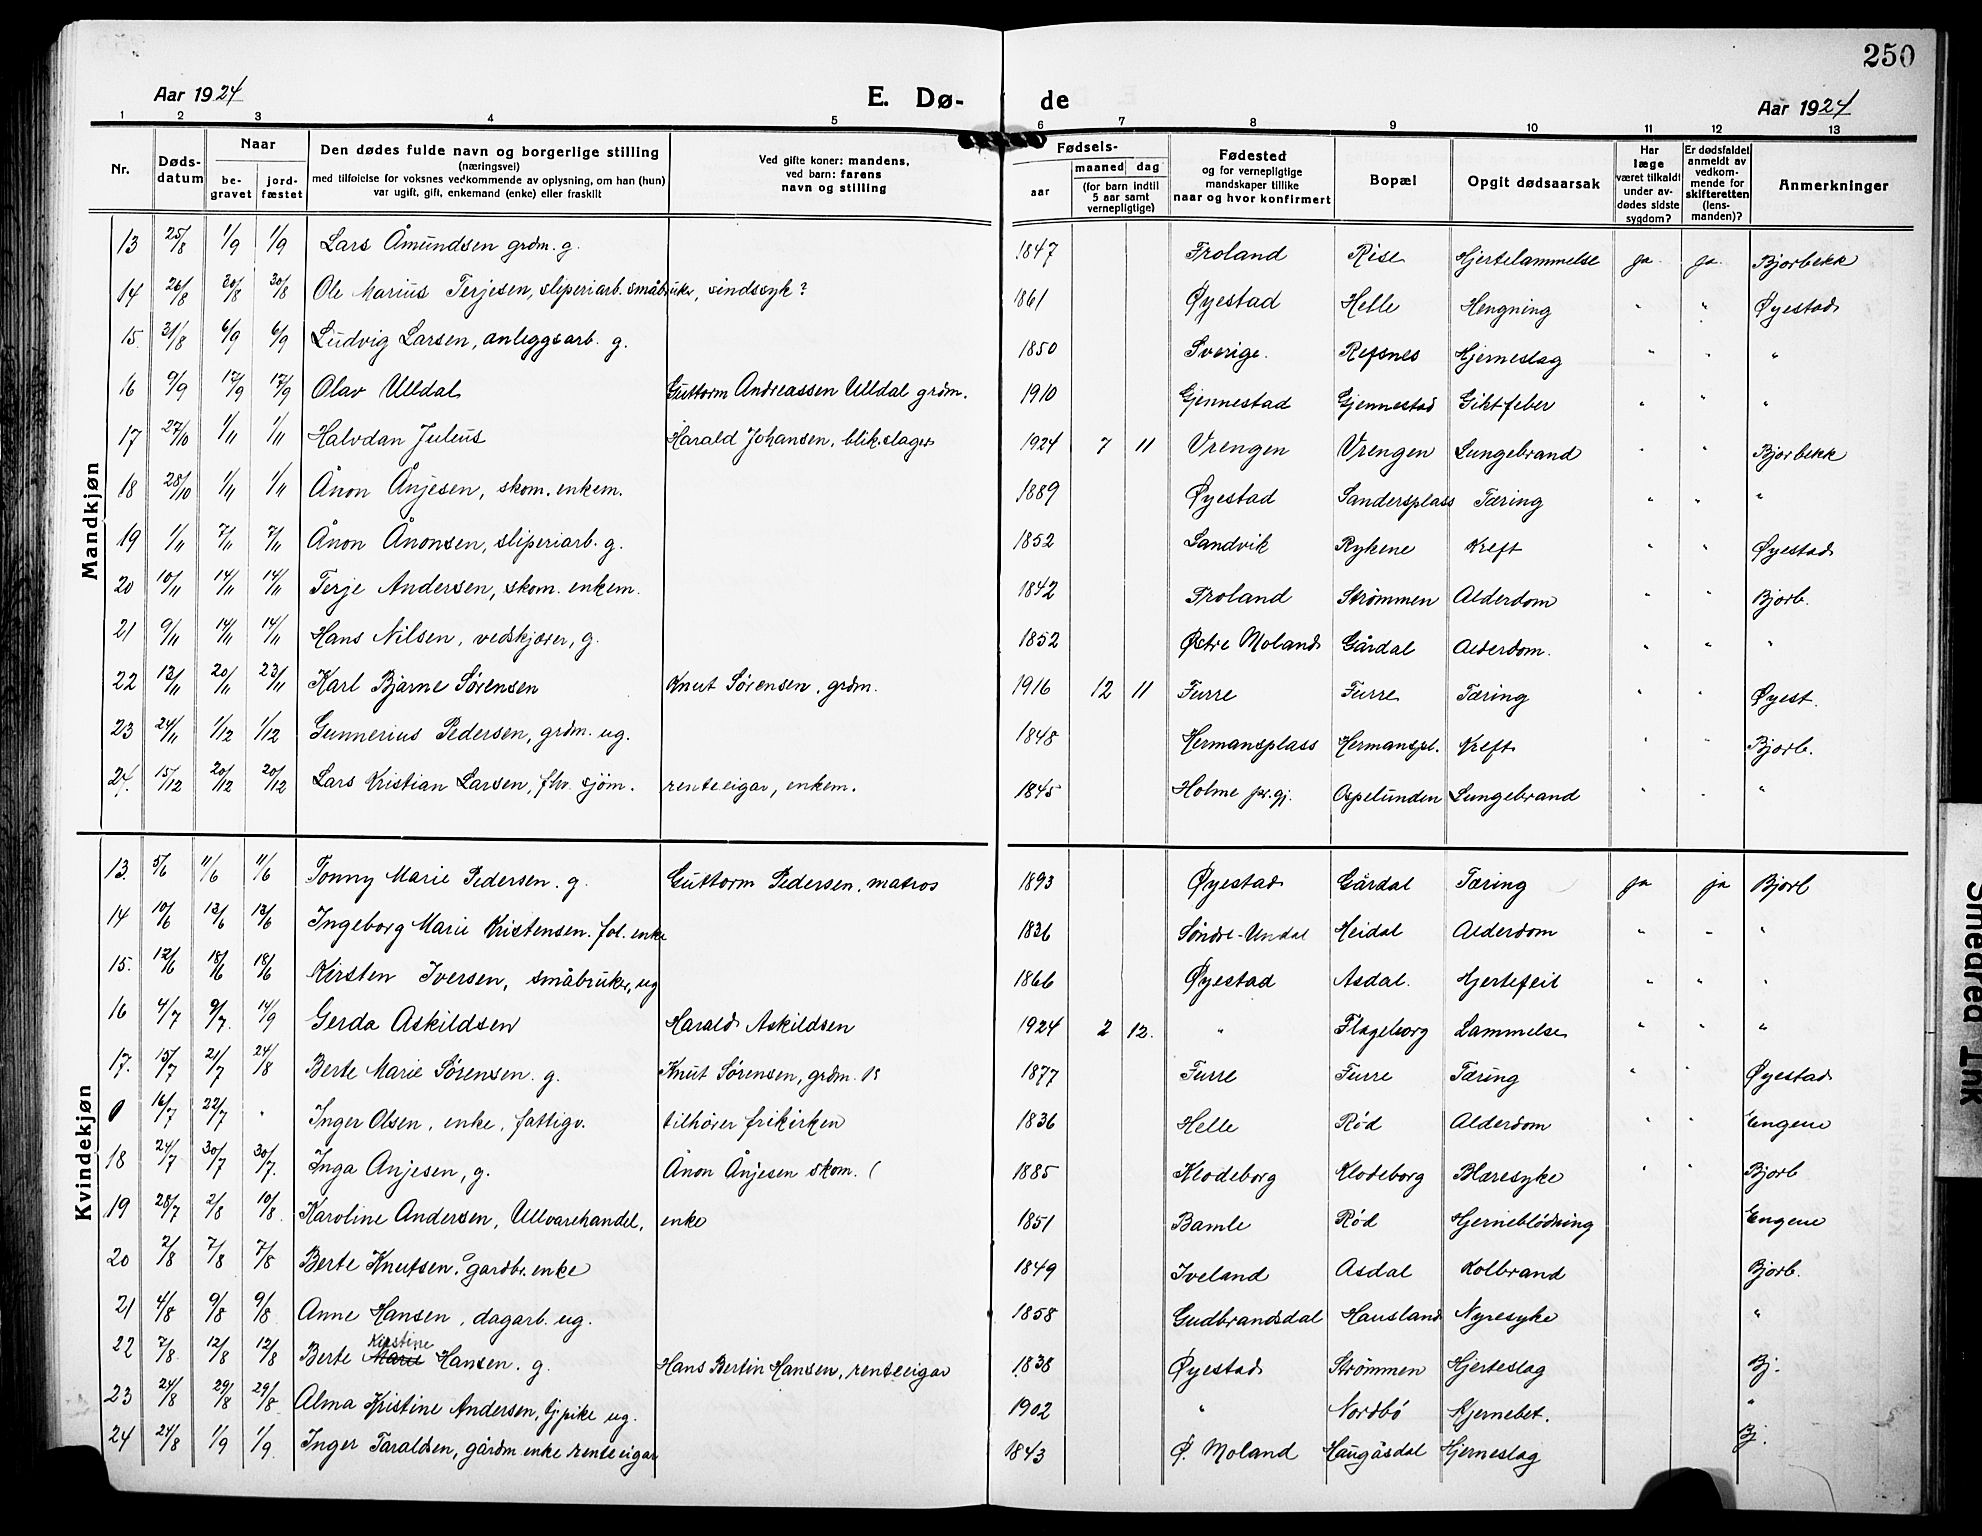 250
Aar 1924 E. Dø- de Aar 1924
1 2 3 4 5 6 7 8 9 10 11 12 13
Nr. Døds-datum Naar begravet jordfæstet Den dødes fulde navn og borgerlige stilling (næringsvei) med tilføielse for voksnes vedkommende av oplysning, om han (hun) var ugift, gift, enkemand (enke) eller fraskilt Ved gifte koner: mandens, ved barn: farens navn og stilling Fødsels- aar maaned dag (for barn indtil 5 aar samt vernepligtige) Fødested og for vernepligtige mandskaper tillike naar og hvor konfirmert Bopæl Opgit dødsaarsak Har læge været tilkaldt under avdødes sidste sygdom? Er dødsfaldet anmeldt av vedkommende for skifteretten (lensmanden)? Anmerkninger
Mandkjøn
13 25/8 1/9 1/9 Lars Åmundsen grdm. g. 1847 Froland Rise Hjertelammelse ja ja Bjorbekk
14 26/8 30/8 30/8 Ole Marius Terjesen, sliperiarb. småbruker, sindssyk? 1861 Øyestad Helle Hengning " " Øyestad
15. 31/8 6/9 6/9 Ludvig Larsen, anleggsarb. g. 1850 Sverige. Refsnes Hjerneslag " " "
16 9/9 17/9 17/9 Olav Ulldal Guttorm Andreassen Ulldal grdm. 1910 Gjennestad Gjennestad Giktfeber " " "
17 27/10 1/11 1/11 Halvdan Julius Harald Johansen, blikslager 1924 7 11 Vrengen Vrengen Lungebrand " " Bjorbekk
18 28/10 1/11 1/11 Ånon Ånjesen, skom. enkem. 1889 Øyestad Sandersplass Tæring " " "
19 1/11 7/11 7/11 Ånon Ånonsen, sliperiarb. g. 1852 Sandvik Rykene Kreft " " Øyestad
20 10/11 14/11 14/11 Terje Andersen, skom. enkem. 1842 Froland Strømmen Alderdom " " Bjorb.
21 9/11 14/11 14/11 Hans Nilsen, vedskjærer, g. 1852 Østre Moland Gårdal Alderdom. " " "
22 13/11 20/11 23/11 Karl Bjarne Sørensen Knut Sørensen, grdm. 1916 12 11 Furre Furre Tæring " " Øyest.
23 24/11 1/12 1/12 Gunnerius Pedersen, grdm. ug. 1848 Hermansplass Hermanspl. Kreft " " Bjorb.
24. 15/12 20/12 20/12 Lars Kristian Larsen, fhv. sjöm. renteeigar, enkem. 1845 Holme pr.gj. Ospelunden Lungebrand " " "
Kvindekjøn
13. 5/6 11/6 11/6 Tonny Marie Pedersen. g. Guttorm Pedersen, matros 1893 Øyestad Gårdal Tæring ja ja Bjorb
14 10/6 13/6 13/6 Ingeborg Marie Kristensen. fol. enke 1836 Söndre-Undal Heidal Alderdom " " "
15. 12/6 18/6 18/6 Kirsten Iversen, småbruker, ug 1866 Øyestad Asdal. Hjertefeil " " "
16 4/7 9/7. 14/9 Gerda Askildsen Harald Askildsen 1924 2 12. " Flageborg Lammelse " " "
17. 15/7 21/7 24/8 Berte Marie Sørensen. g. Knut Sørensen, grdm. 1877 Furre Furre Tæring " " Øyestad
0 16/7 22/7 " Inger Olsen, enke, fattigv. tilhører frikirken 1836 Helle Rød Alderdom " " Engene
18 24/7 30/7 30/7. Inga Anjesen, g. Ånon Ånjesen skom. ( 1885 Klodeborg Klodeborg Blæresyke " " Bjorb
19 28/7 2/8 10/8 Karoline Andersen, Ullvarehandel, enke 1851 Bamle Rød Hjerneblödning Engene
20 2/8 7/8 7/8 Berte Knutsen. gardbr. enke 1849 Iveland Asdal Kolbrand Bjorb.
21 4/8 9/8 9/8 Anne Hansen, dagarb. ug. 1858 Gudbrandsdal Hausland Nyresyke "
22 7/8 12/8 12/8 Berte Marie Kirstine Hansen. g. Hans Bertin Hansen, renteeigar 1838 Øyestad Strømmen Hjerteslag Bj.
23 24/8 29/8 29/8 Alma Kristine Andersen, tj.pike ug. 1902 " Nordbö Hjernebet. "
24 24/8 1/9 1/9 Inger Taraldsen, gårdm. enke renteeigar 1843 Ø. Moland Haugåsdal Hjerneslag Bj.
Smedrea Ink